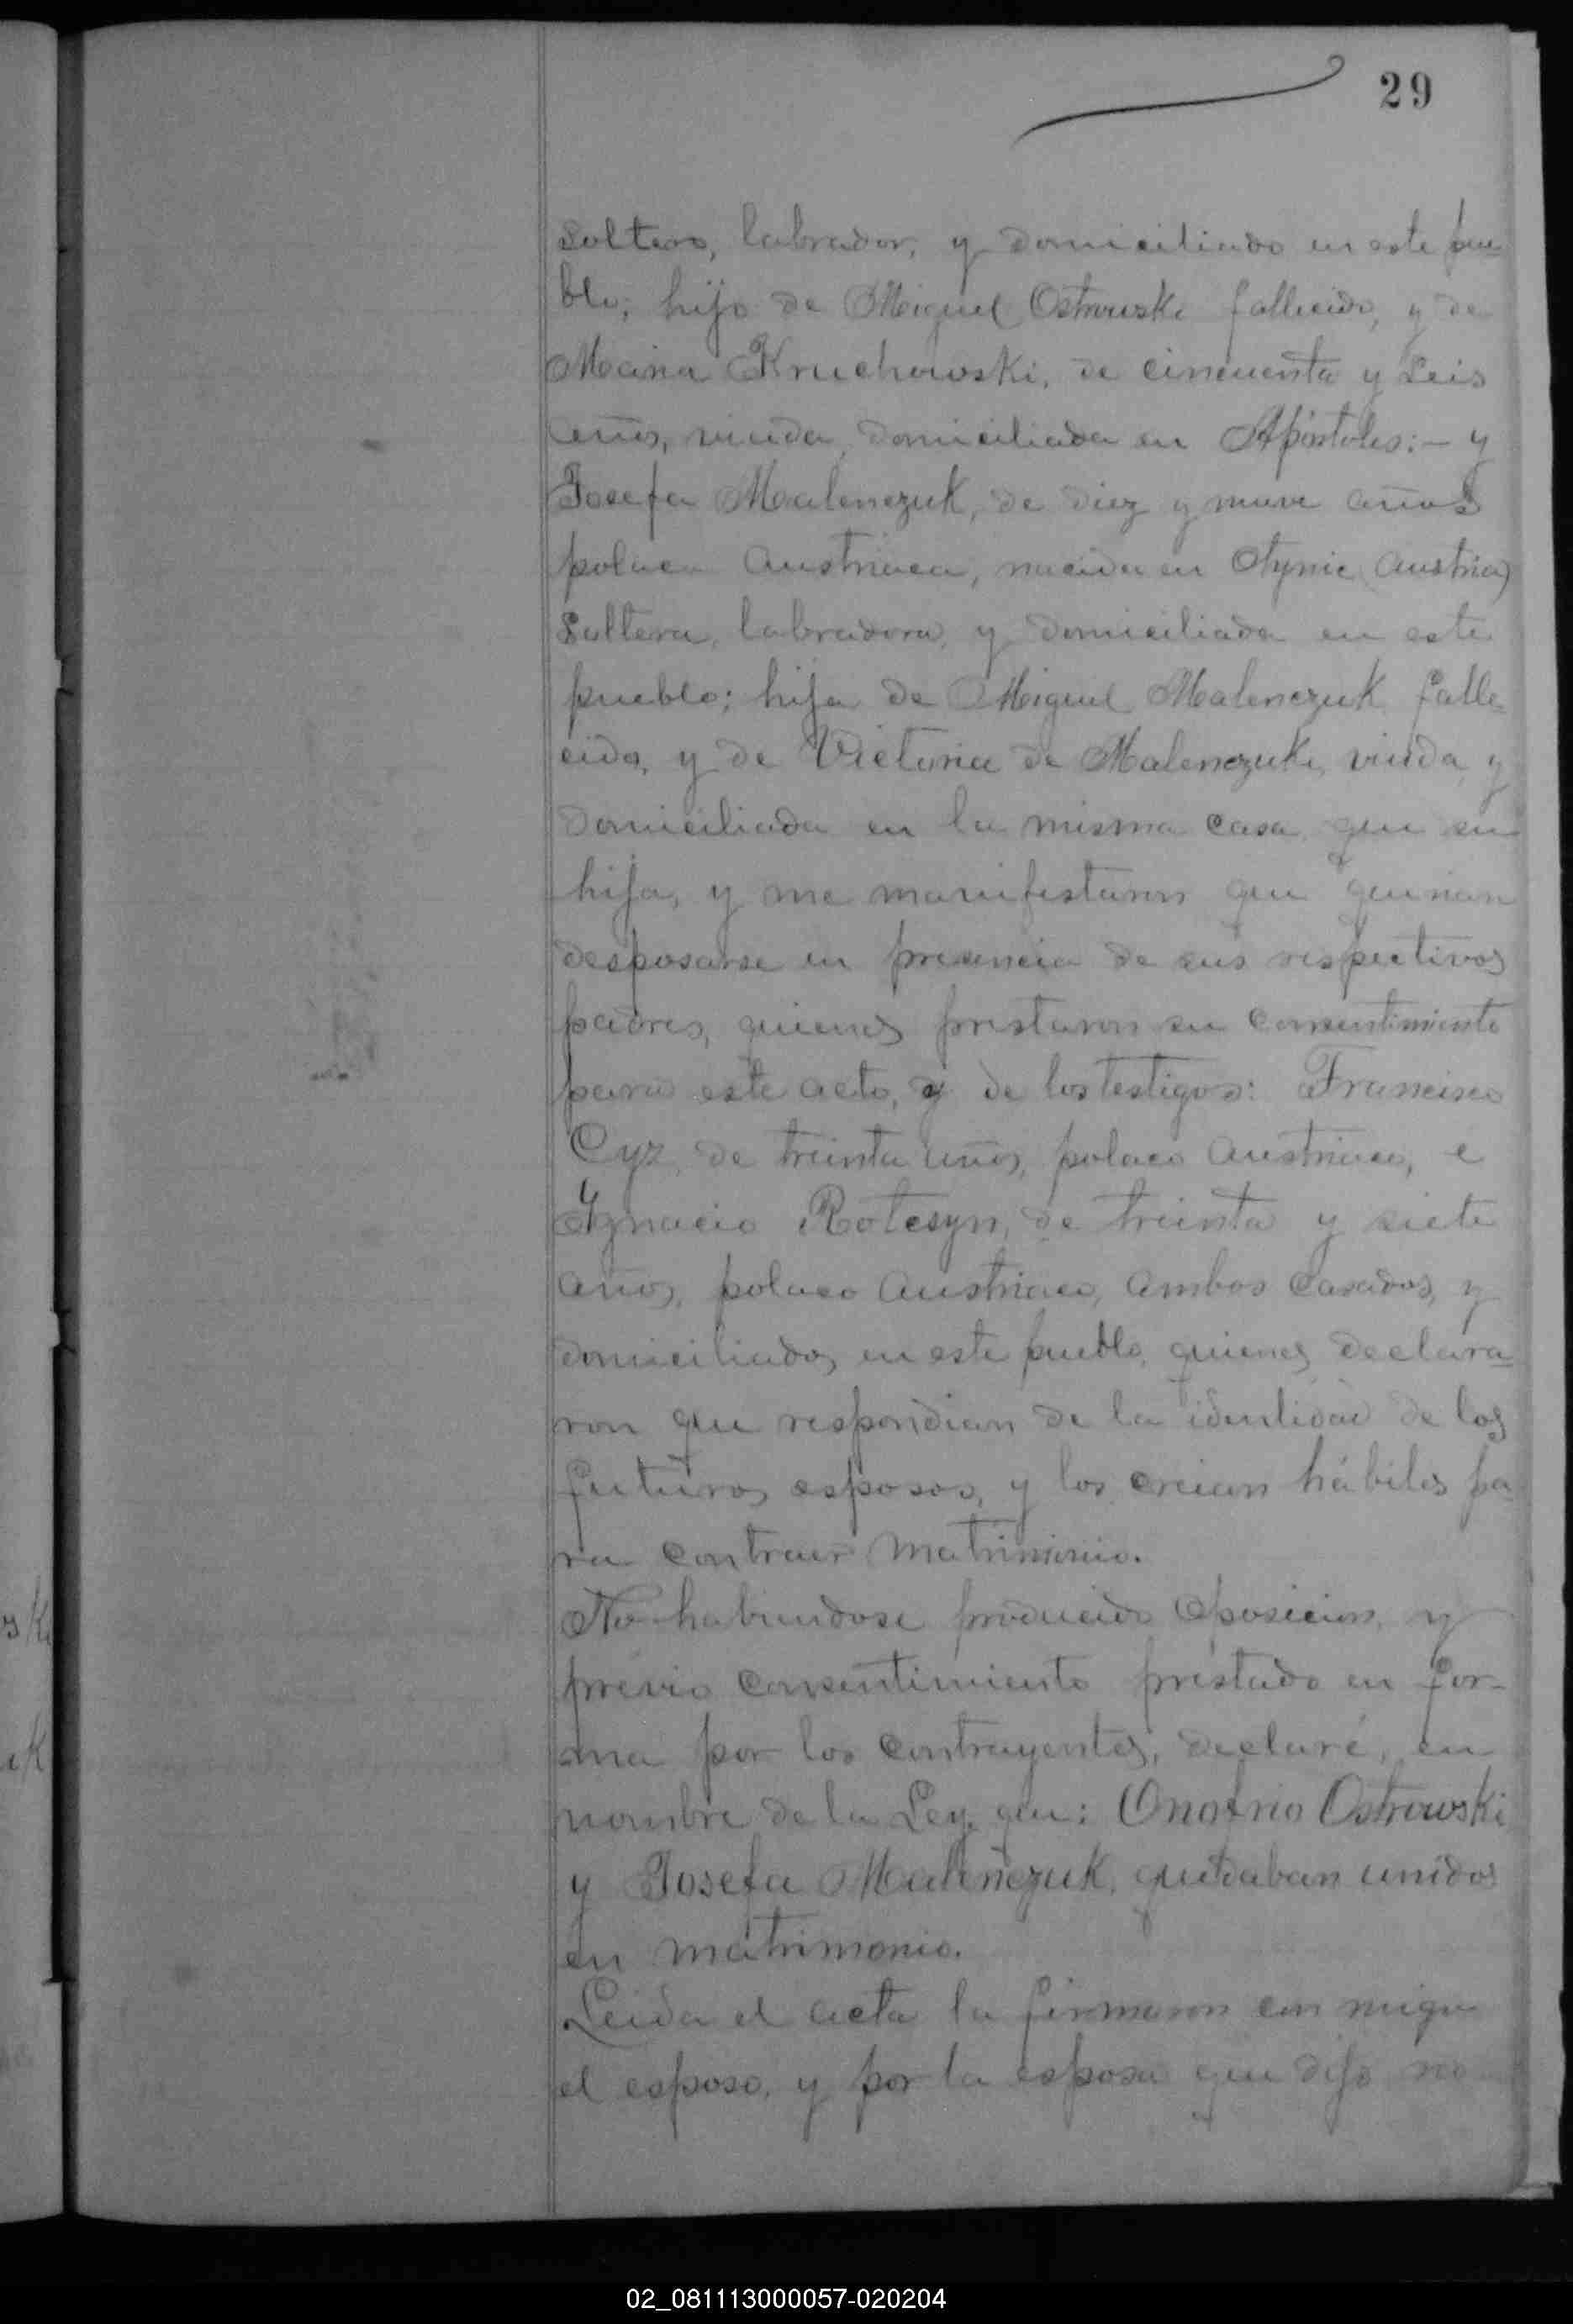 29
soltero, labrador, y domiciliado en este pue
blo; hijo de Miguel Ostrowski fallecido, y de
Maria Kruchowski, de cincuenta y seis
años, viuda, domiciliada en Apóstoles: - y
Josefa Malenczuk, de diez y nueve años
polaca austriaca, nacida en Otynie (Austria)
soltera, labradora, y domiciliada en este
pueblo; hija de Miguel Malenczuk falle-
cido, y de Victoria de Malenczuk, viuda, y
domiciliada en la misma casa que su
hija, y me manifestaron que querian
desposarse en presencia de sus respectivos
padres, quienes prestaron su consentimiento
para este acto, y de los testigos: Francisco
Cyz, de treinta años, polaco austriaco, e
Ygnacio Rotesyn, de treinta y siete
años, polaco austriaco, ambos casados, y
domiciliados en este pueblo, quienes declara-
ron que respondian de la identidad de los
futuros esposos, y los creian hábiles pa-
ra contraer matrimonio.
No habiendose producido oposicion, y
prévio consentimiento prestado en for-
ma por los contrayentes, declaré, en
nombre de la Ley, que: Onofrio Ostrowski
y Josefa Malenczuk, quedaban unidos
en matrimonio.
Leida el acta la firmaron con migo
el esposo, y por la esposa que dijo no
ski
uk
02_081113000057-020204